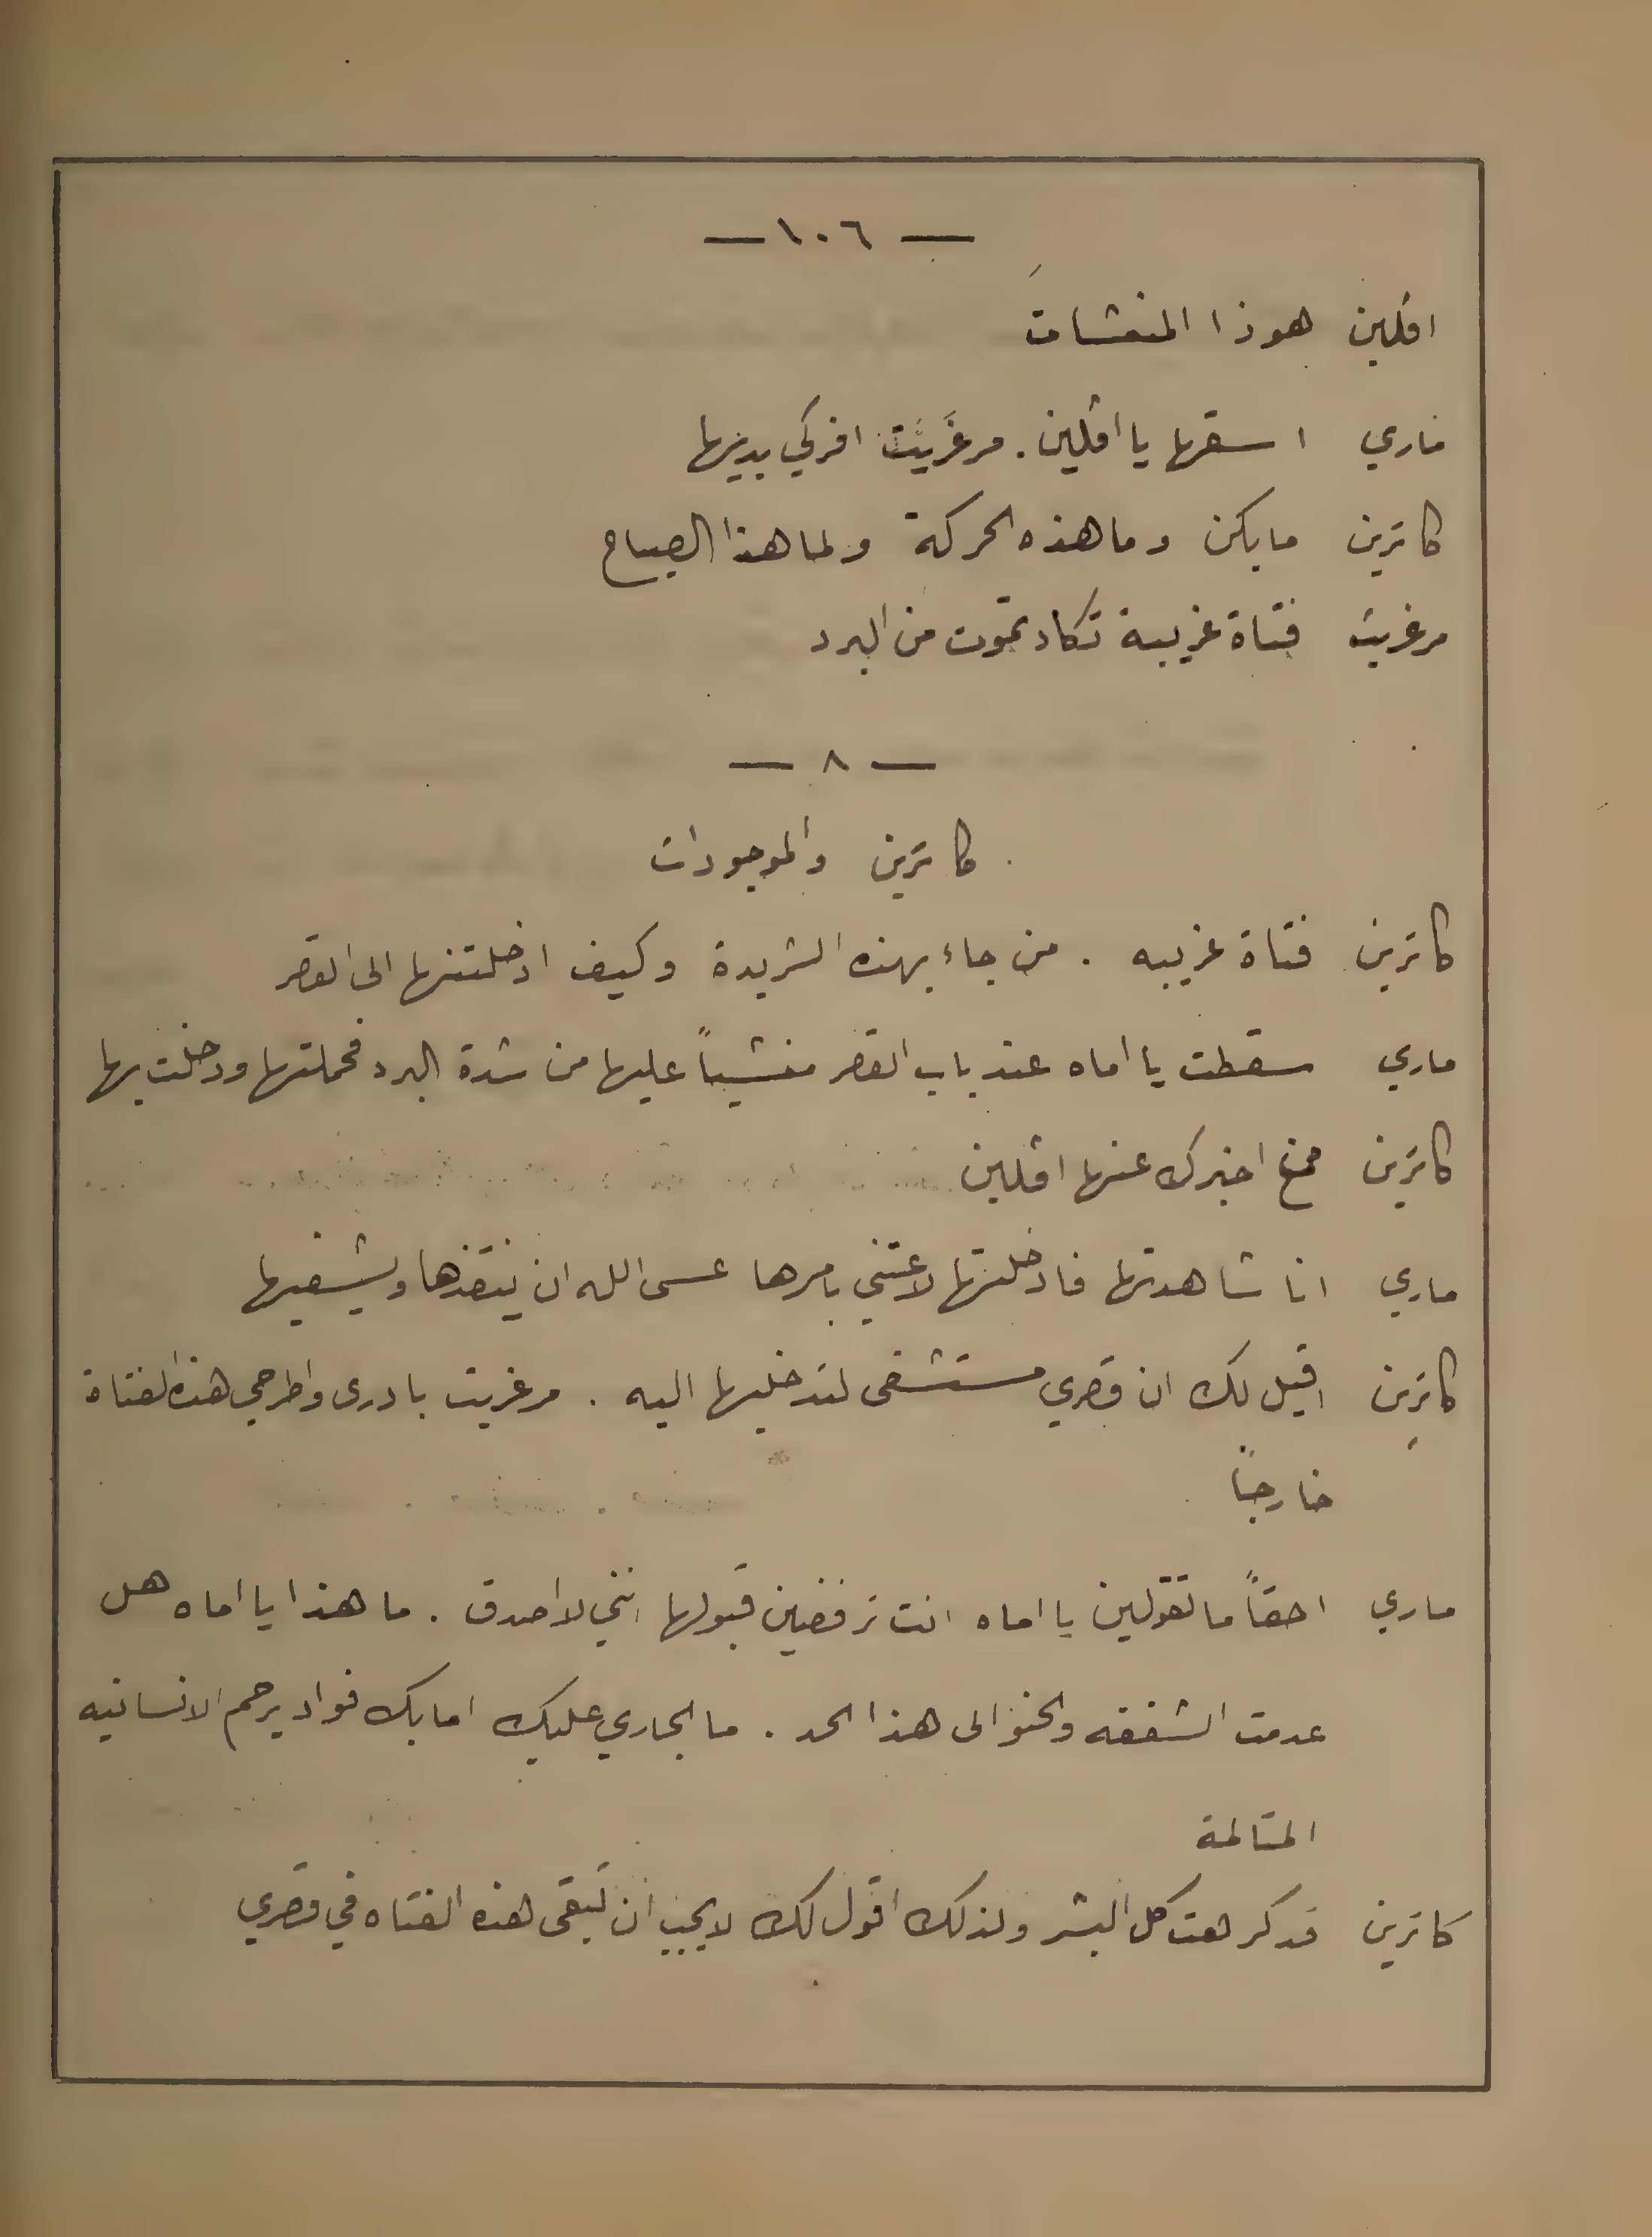 — ١٠٦ —
افلين هوذا المنعشات
ماري اسقها يا افلين . مرغَريَت افركي يديها
كاترين ما بكن وما هذه الحركة ولما هذا الصياح
مرغريت فتاة غريبة تكاد تموت من البرد
— ٨ —
كاترين والموجودات
كاترين فتاة غريبه . من جاء بهذه الشريدة وكيف ادخلتنها الى القصر
ماري سقطت يا اماه عند باب القصر مغشياً عليها من شدة البرد فحملتها ودخلت بها
كاترين اخبرك عنها افلين
ماري انا شاهدتها فادخلتها لاعتني بامرها عسى الله ان ينقذها ويشفيها
كاترين اقيل لك ان قصري مستشفى لتدخليها اليه . مرغريت بادرى واطرحي هذه الفتاة
خارجاً
ماري احقاً ما تقولين يا اماه انت ترفضين قبولها انني لا اصدق . ما هذا يا اماه هل
عدمت الشفقه والحنو الى هذا الحد . ما الجاري عليك اما بك فواد يرحم الانسانيه
المتالمة
كاترين قد كرهت كل البشر ولذلك اقول لك لا يجب ان تبقى هذه الفتاه في قصري